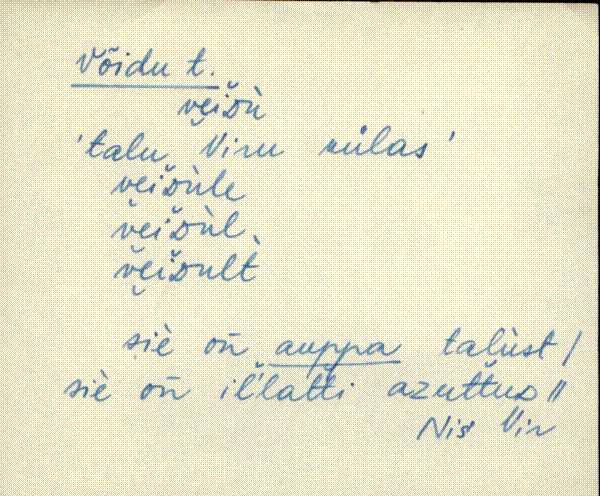 Võidu t.
vei̯D̆ù
'talu Viru külas'
vei̯D̆ùle
vei̯D̆ùl
vei̯D̆ult̀
siè on̄ auppa talùst /
siè on̄ il'latti azuttuD //
Nis Vir